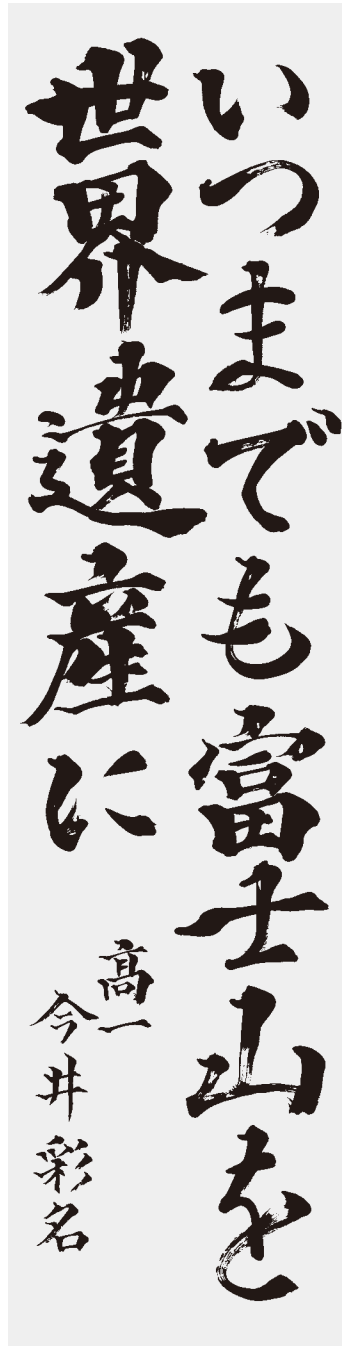 いつまでも富士山を
世界遺産に
高一
今井彩名